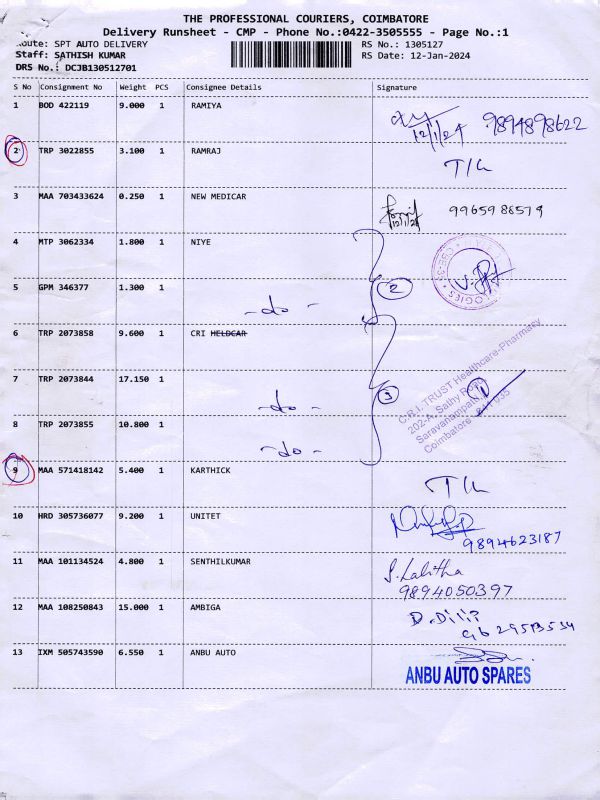 THE PROFESSIONAL COURIERS, COIMBATORE
Delivery Runsheet - CMP - Phone No.:0422-3505555 - Page No.:1
Route: SPT AUTO DELIVERY RS No.: 1305127
Staff: SATHISH KUMAR RS Date: 12-Jan-2024
DRS No.: DCJB130512701
S No Consignment No Weight PCS Consignee Details Signature
1 BOD 422119 9.000 1 RAMIYA 12/1/24 9894898622
2 TRP 3022855 3.100 1 RAMRAJ T/L
3 MAA 703433624 0.250 1 NEW MEDICAR 12/1/24 9965988579
4 MTP 3062334 1.800 1 NIYE
5 GPM 346377 1.300 1 -do- 2
6 TRP 2073858 9.600 1 CRI HELDCAR
7 TRP 2073844 17.150 1 -do- 3
8 TRP 2073855 10.800 1 -do-
C.R.I. TRUST Healthcare-Pharmacy
202-A, Sathy Road
Saravanampatti
Coimbatore - 641 035
9 MAA 571418142 5.400 1 KARTHICK T/L
10 HRD 305736077 9.200 1 UNITET 9894623187
11 MAA 101134524 4.800 1 SENTHILKUMAR S. Lalitha
9894050397
12 MAA 108250843 15.000 1 AMBIGA D. Dilip
13 IXM 505743590 6.550 1 ANBU AUTO
ANBU AUTO SPARES